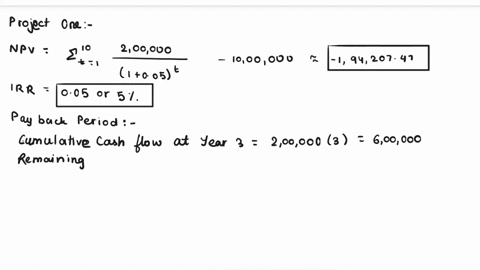 Project One:-
NPV = Σ_{t=1}^{10} 2,00,000 / (1+0.05)^t - 10,00,000 ≈ -1,94,207.47
IRR = 0.05 or 5%.
Payback Period:-
Cumulative Cash flow at Year 3 = 2,00,000 (3) = 6,00,000
Remaining